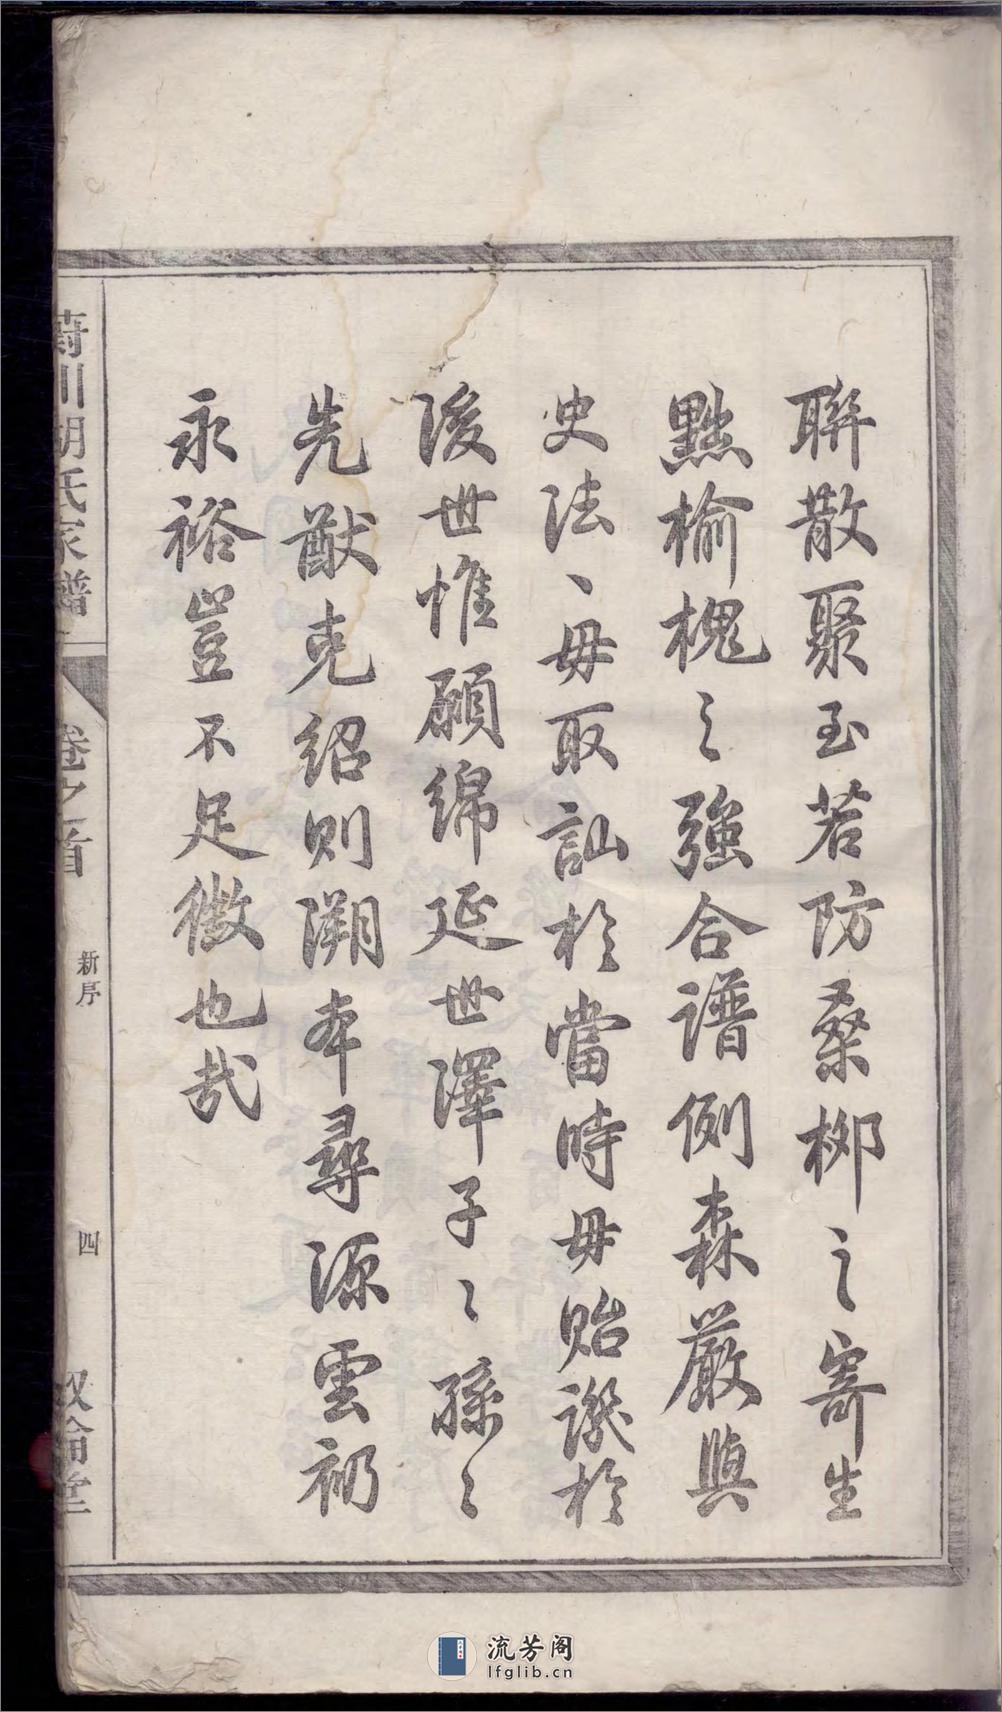 聯散聚至若防桑柳之寄生
黜榆槐之強合譜例森嚴與
史法、毋取訕於當時毋貽譏於
後世惟願綿延世澤子〻孫〻
先猷克紹則溯本尋源雲礽
永裕豈不足徵也哉
蔚川胡氏家譜
卷之首
新序
四
敘倫堂
流芳阁
lfglib.cn